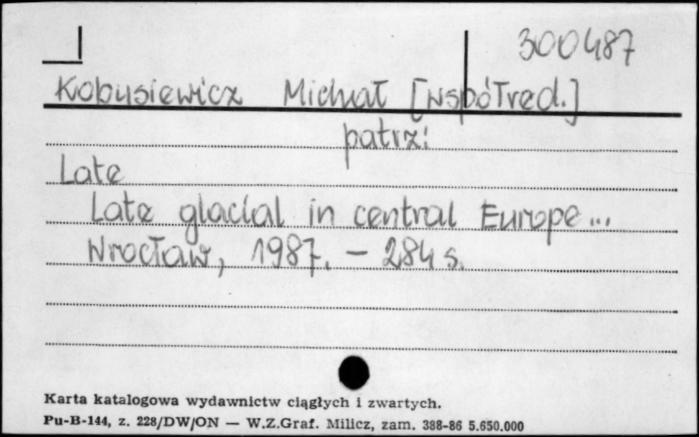 300487
Kobusiewicz Michał [współred.]
patrz:
Late
Late glacial in central Europe...
Wrocław, 1987. - 284 s.
Karta katalogowa wydawnictw ciągłych i zwartych.
Pu-B-144, z. 228/DW/ON — W.Z.Graf. Milicz, zam. 388-86 5.650.000